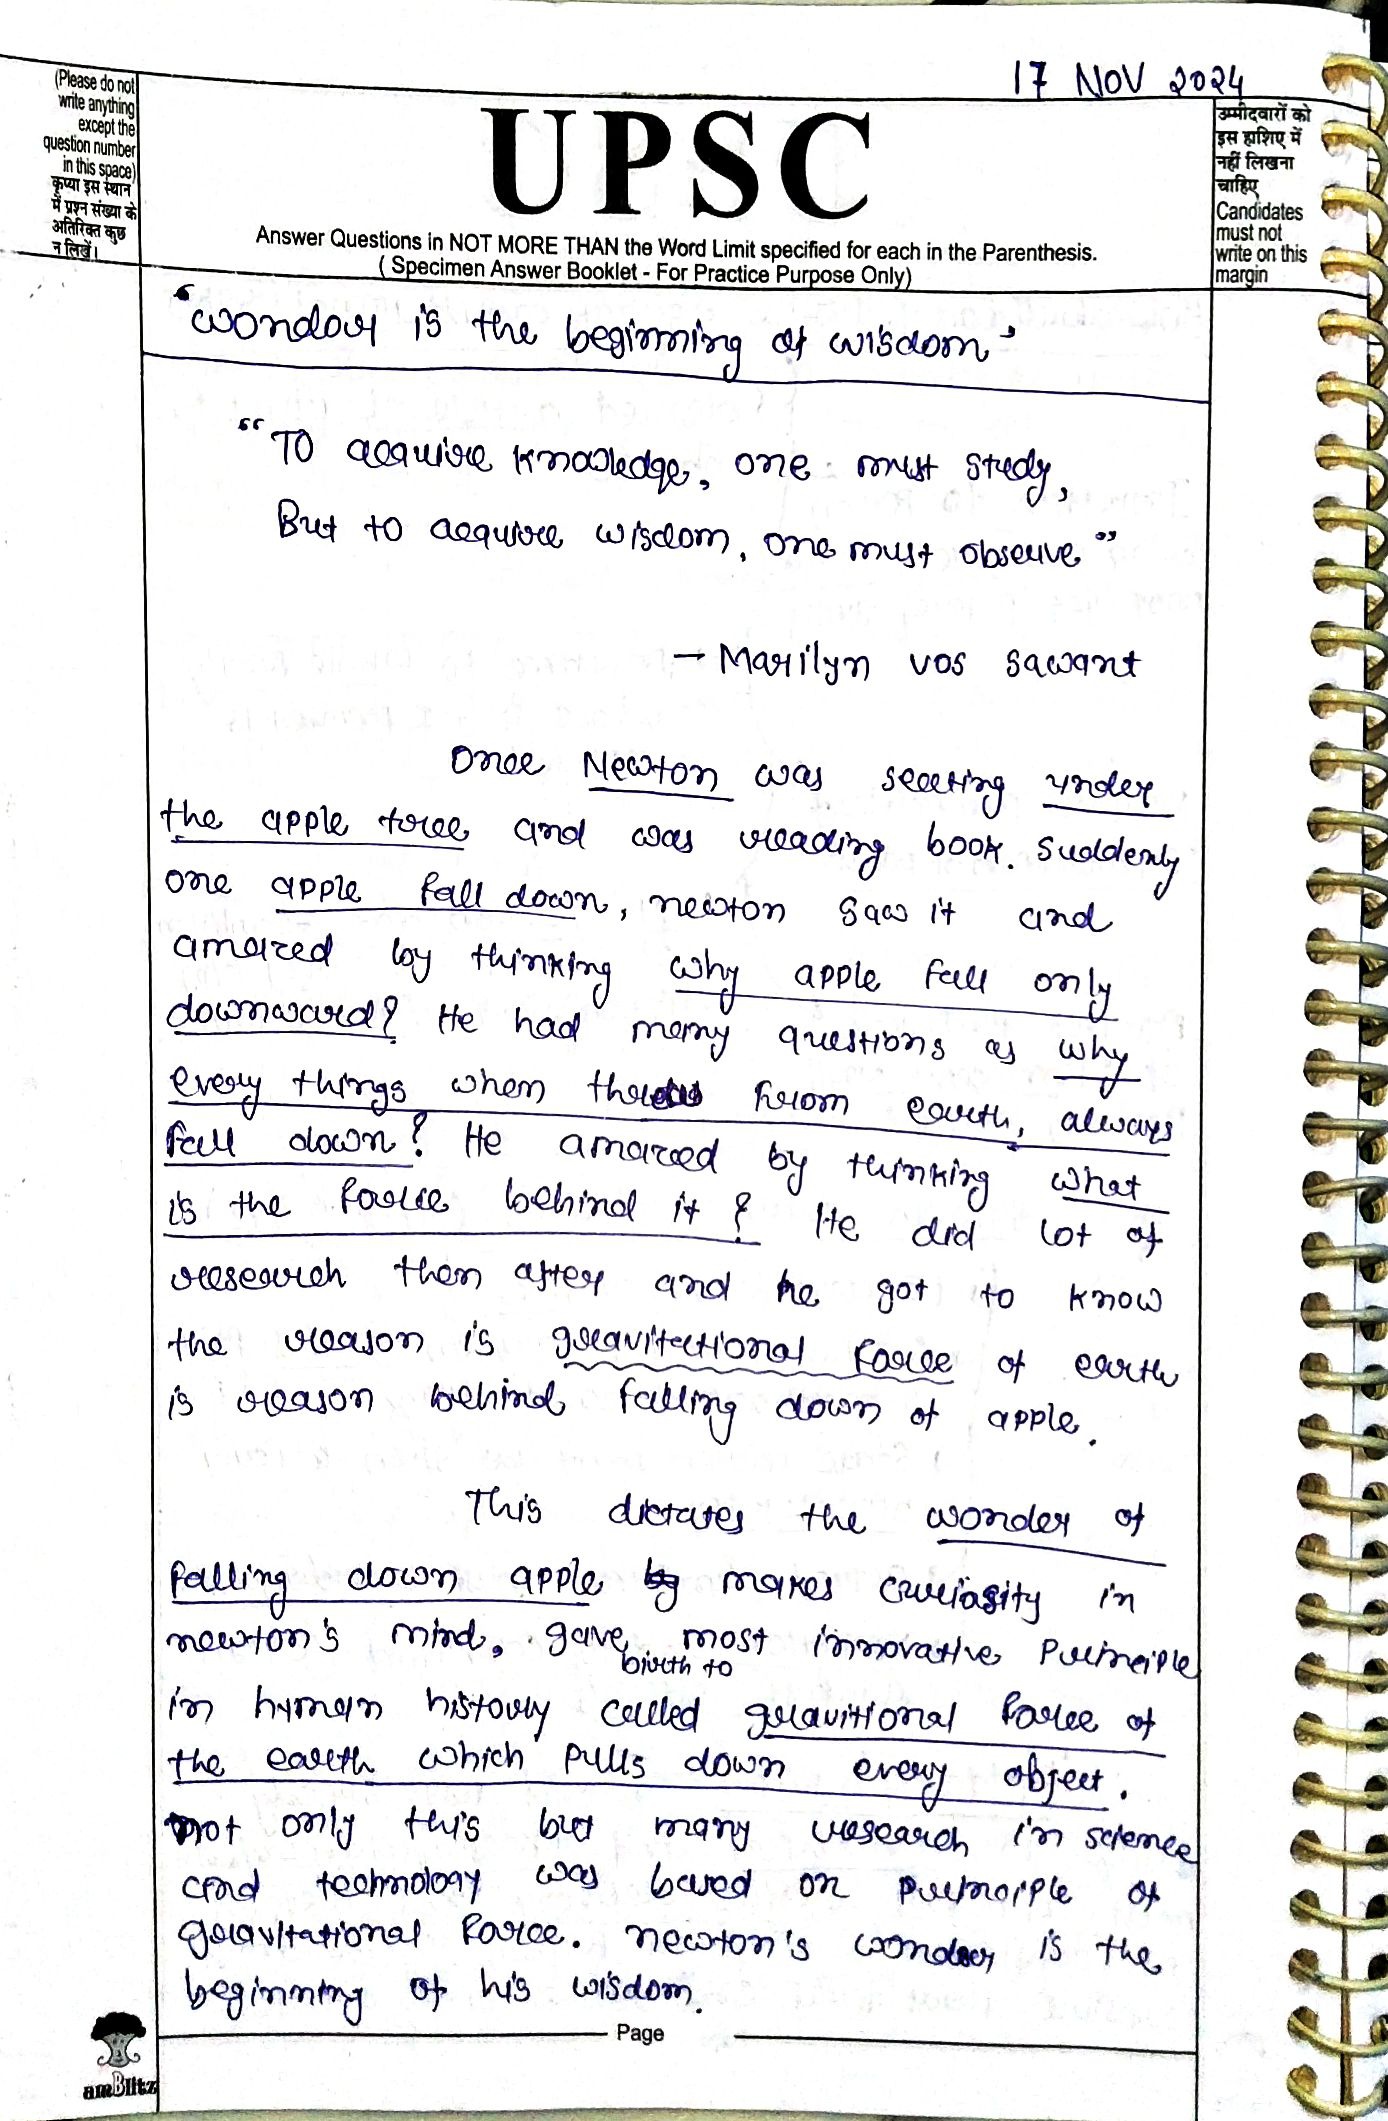 17 NOV 2024
(Please do not
write anything
except the
question number
in this space)
कृप्या इस स्थान
में प्रश्न संख्या के
अतिरिक्त कुछ
न लिखें।
UPSC
Answer Questions in NOT MORE THAN the Word Limit specified for each in the Parenthesis.
( Specimen Answer Booklet - For Practice Purpose Only)
उम्मीदवारों को
इस हाशिए में
नहीं लिखना
चाहिए
Candidates
must not
write on this
margin
"wonder is the beginning of wisdom"
"To acquire knowledge, one must study,
But to acquire wisdom, one must observe"
→ Marilyn vos sawant
Once Newton was seating under
the apple tree and was reading book. Suddenly
one apple fall down, newton saw it and
amazed by thinking why apple fall only
downward? He had many questions as why
every things when from earth, always
fall down? He amazed by thinking what
is the force behind it? He did lot of
research then after and he got to know
the reason is gravitational force of earth
is reason behind falling down of apple.
This dictates the wonder of
falling down apple makes curiosity in
newton's mind, gave birth to most innovative principle
in human history called gravitional force of
the earth which pulls down every object.
not only this but many research in science
and technology was based on principle of
gravitational force. newton's wonder is the
beginning of his wisdom.
Page
amBlitz